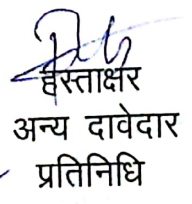 हस्ताक्षर
अन्य दावेदार
प्रतिनिधि